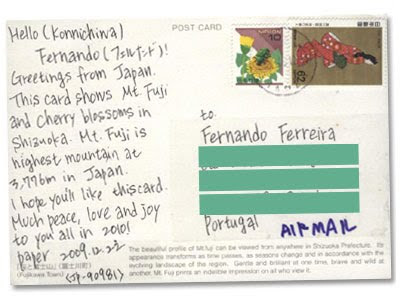 POST CARD
Hello (Konnichiwa)
Fernando (フェルナンド)!
Greetings from Japan.
This card shows Mt. Fuji
and cherry blossoms in
Shizuoka. Mt. Fuji is
highest mountain at
3,776m in Japan.
I hope you'll like this card.
Much peace, love and joy
to you all in 2010!
paper 2009.12.22
(JP-90981)
NIPPON
10
62
to
Fernando Ferreira
Portugal
AIR MAIL
The beautiful profile of Mt.fuji can be viewed from anywhere in Shizuoka Prefecture. Its
appearance transforms as time passes, as seasons change and in accordance with the
evolving landscape of the region. Gentle and brilliant at one time, brave and wild at
another. Mt. Fuji prints an indelible impression on all who view it.
と富士山(富士川町)
(Fujikawa Town)